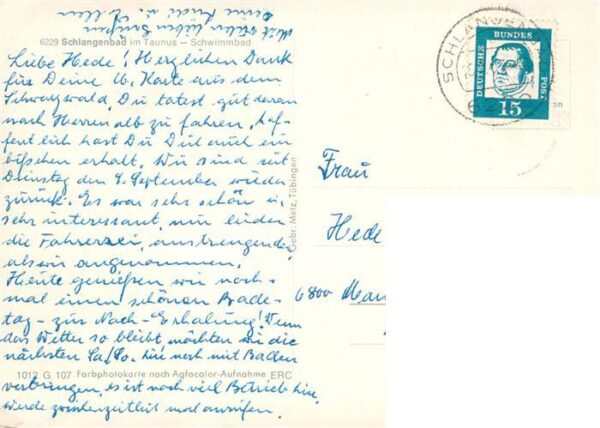 6229 Schlangenbad im Taunus — Schwimmbad
Liebe Hede! Herzlichen Dank
für Deine lb. Karte aus dem
Schwarzwald. Du tatest gut daran
nach Herrenalb zu fahren, hof-
fentlich hast Du Dich auch ein
bißchen erholt. Wir sind seit
Dienstag den 9. September wieder
zurück. Es war sehr schön u.
sehr interessant, nur leider
die Fahrerei, anstrengender
als wir angenommen.
Heute genießen wir noch-
mal einen schönen Bade-
tag – zur Nach-Erholung! Wenn
das Wetter so bleibt, möchten wir die
nächsten Sa/So. hier noch mit Baden
verbringen, es ist noch viel Betrieb hier,
werde zwischenzeitlich mal anrufen.
Mit vielen lieben Grüßen
Deine
1012 G 107 Farbphotokarte nach Agfacolor-Aufnahme ERC
Gebr. Metz, Tübingen
SCHLANGEN
DEUTSCHE BUNDES POST
15
Frau
Hede
6800 Man